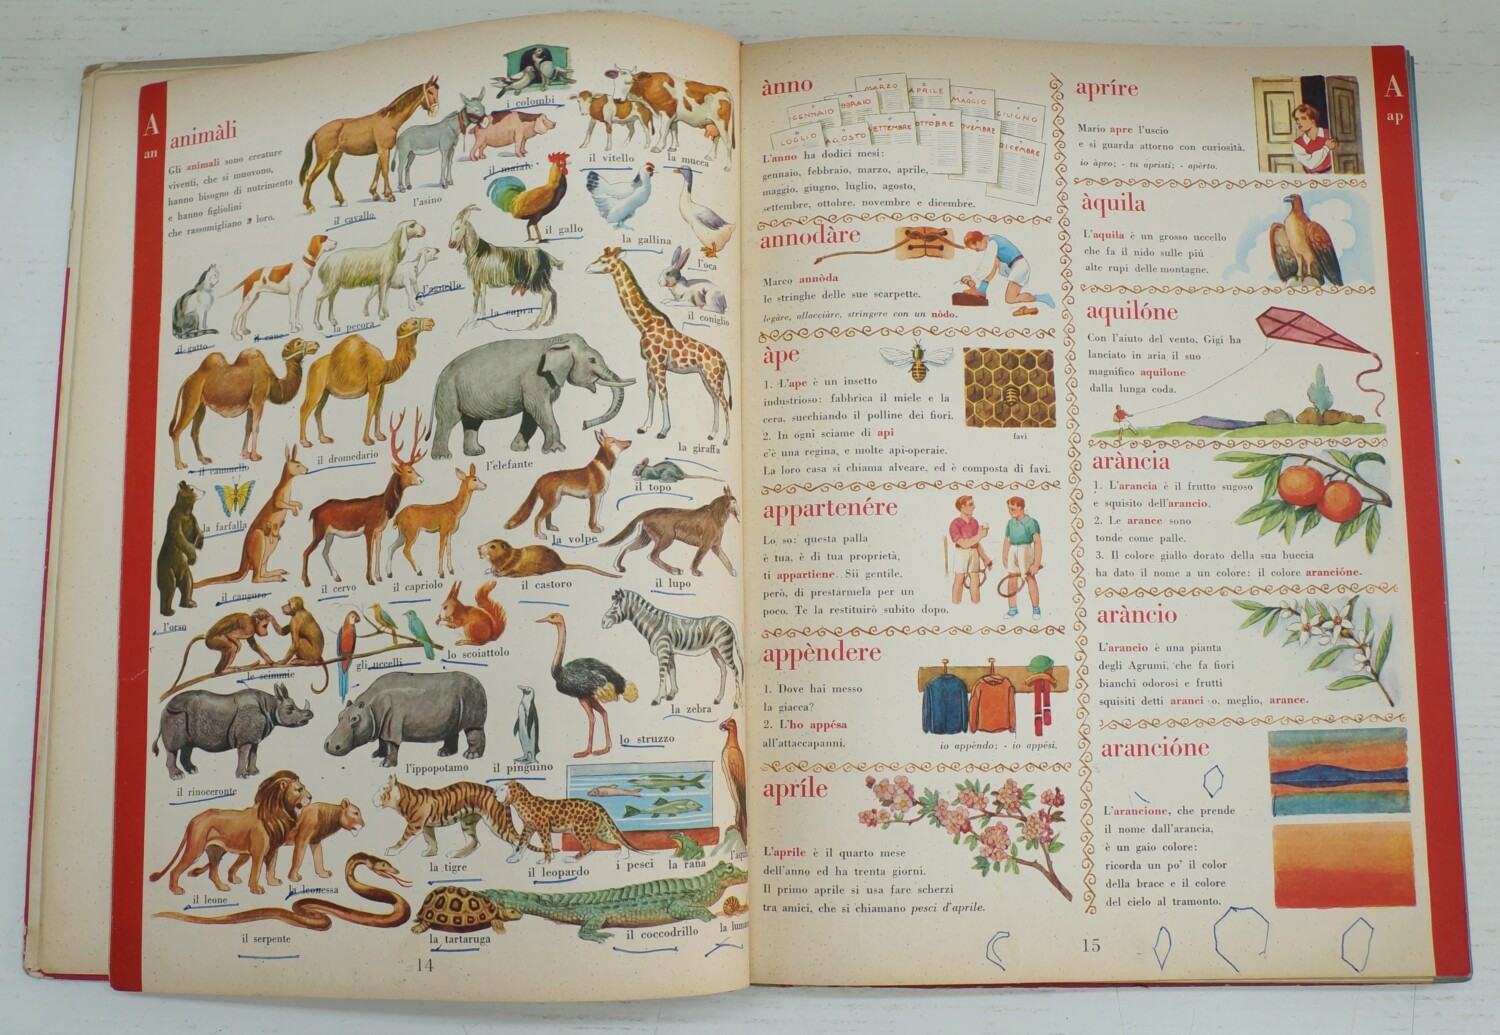 A
an
animàli
Gli animali sono creature
viventi, che si muovono,
hanno bisogno di nutrimento
e hanno figliolini
che rassomigliano a loro.
i colombi
il maiale
il vitello
la mucca
il cavallo
l'asino
il gallo
la gallina
l'oca
il gatto
il cane
la pecora
l'agnello
la capra
il coniglio
il cammello
il dromedario
l'elefante
la giraffa
il topo
la farfalla
la volpe
il canguro
il cervo
il capriolo
il castoro
il lupo
l'orso
le scimmie
gli uccelli
lo scoiattolo
la zebra
lo struzzo
il rinoceronte
l'ippopotamo
il pinguino
il leone
la leonessa
la tigre
il leopardo
i pesci
la rana
il serpente
la tartaruga
il coccodrillo
14
ànno
GENNAIO
MARZO
APRILE
MAGGIO
GIUGNO
AGOSTO
OTTOBRE
DICEMBRE
L'anno ha dodici mesi:
gennaio, febbraio, marzo, aprile,
maggio, giugno, luglio, agosto,
settembre, ottobre, novembre e dicembre.
annodàre
Marco annòda
le stringhe delle sue scarpette.
legàre, allacciàre, stringere con un nòdo.
àpe
1. L'ape è un insetto
industrioso: fabbrica il miele e la
cera, succhiando il polline dei fiori.
2. In ogni sciame di api
c'è una regina, e molte api-operaie.
La loro casa si chiama alveare, ed è composta di favi.
favi
appartenére
Lo so: questa palla
è tua, è di tua proprietà,
ti appartiene. Sii gentile,
però, di prestarmela per un
poco. Te la restituirò subito dopo.
appèndere
1. Dove hai messo
la giacca?
2. L'ho appésa
all'attaccapanni.
io appèndo; - io appési.
apríle
L'aprile è il quarto mese
dell'anno ed ha trenta giorni.
Il primo aprile si usa fare scherzi
tra amici, che si chiamano pesci d'aprile.
A
ap
apríre
Mario apre l'uscio
e si guarda attorno con curiosità.
io àpro; - tu apristi; - apèrto.
àquila
L'aquila è un grosso uccello
che fa il nido sulle più
alte rupi delle montagne.
aquilóne
Con l'aiuto del vento, Gigi ha
lanciato in aria il suo
magnifico aquilone
dalla lunga coda.
arància
1. L'arancia è il frutto sugoso
e squisito dell'arancio.
2. Le arance sono
tonde come palle.
3. Il colore giallo dorato della sua buccia
ha dato il nome a un colore: il colore arancióne.
aràncio
L'arancio è una pianta
degli Agrumi, che fa fiori
bianchi odorosi e frutti
squisiti detti aranci o, meglio, arance.
arancióne
L'arancione, che prende
il nome dall'arancia,
è un gaio colore:
ricorda un po' il color
della brace e il colore
del cielo al tramonto.
15